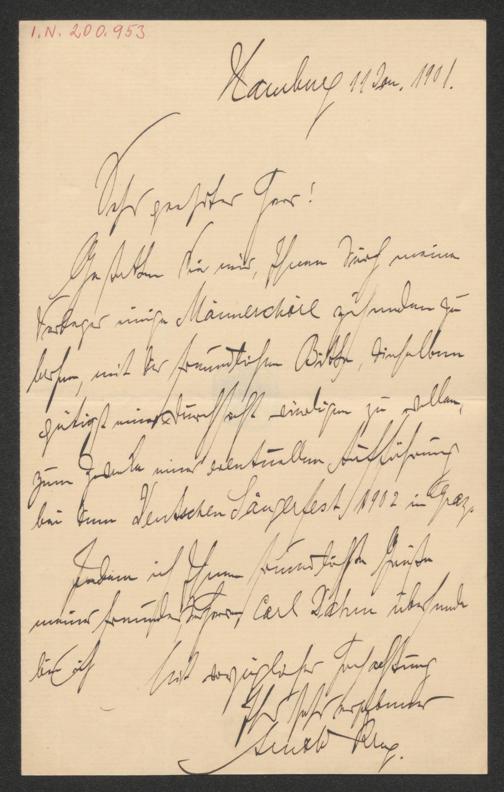 I.N. 200.953
Hamburg 11 Jan. 1901.
Sehr geehrter Herr!
Gestatten Sie mir, Ihnen durch meine
Verleger einige Männerchöre zusenden zu
lassen, mit der freundlichen Bitte, dieselben
gütigst einer Durchsicht würdigen zu wollen,
zum Zwecke einer eventuellen Aufführung
bei dem Deutschen Sängerfest 1902 in Graz.
Indem ich Ihnen freundlichste Grüße
meines Freundes Herrn Carl übersende
bin ich Mit vorzüglicher Hochachtung
Ihr sehr ergebener
Arnold Krug.